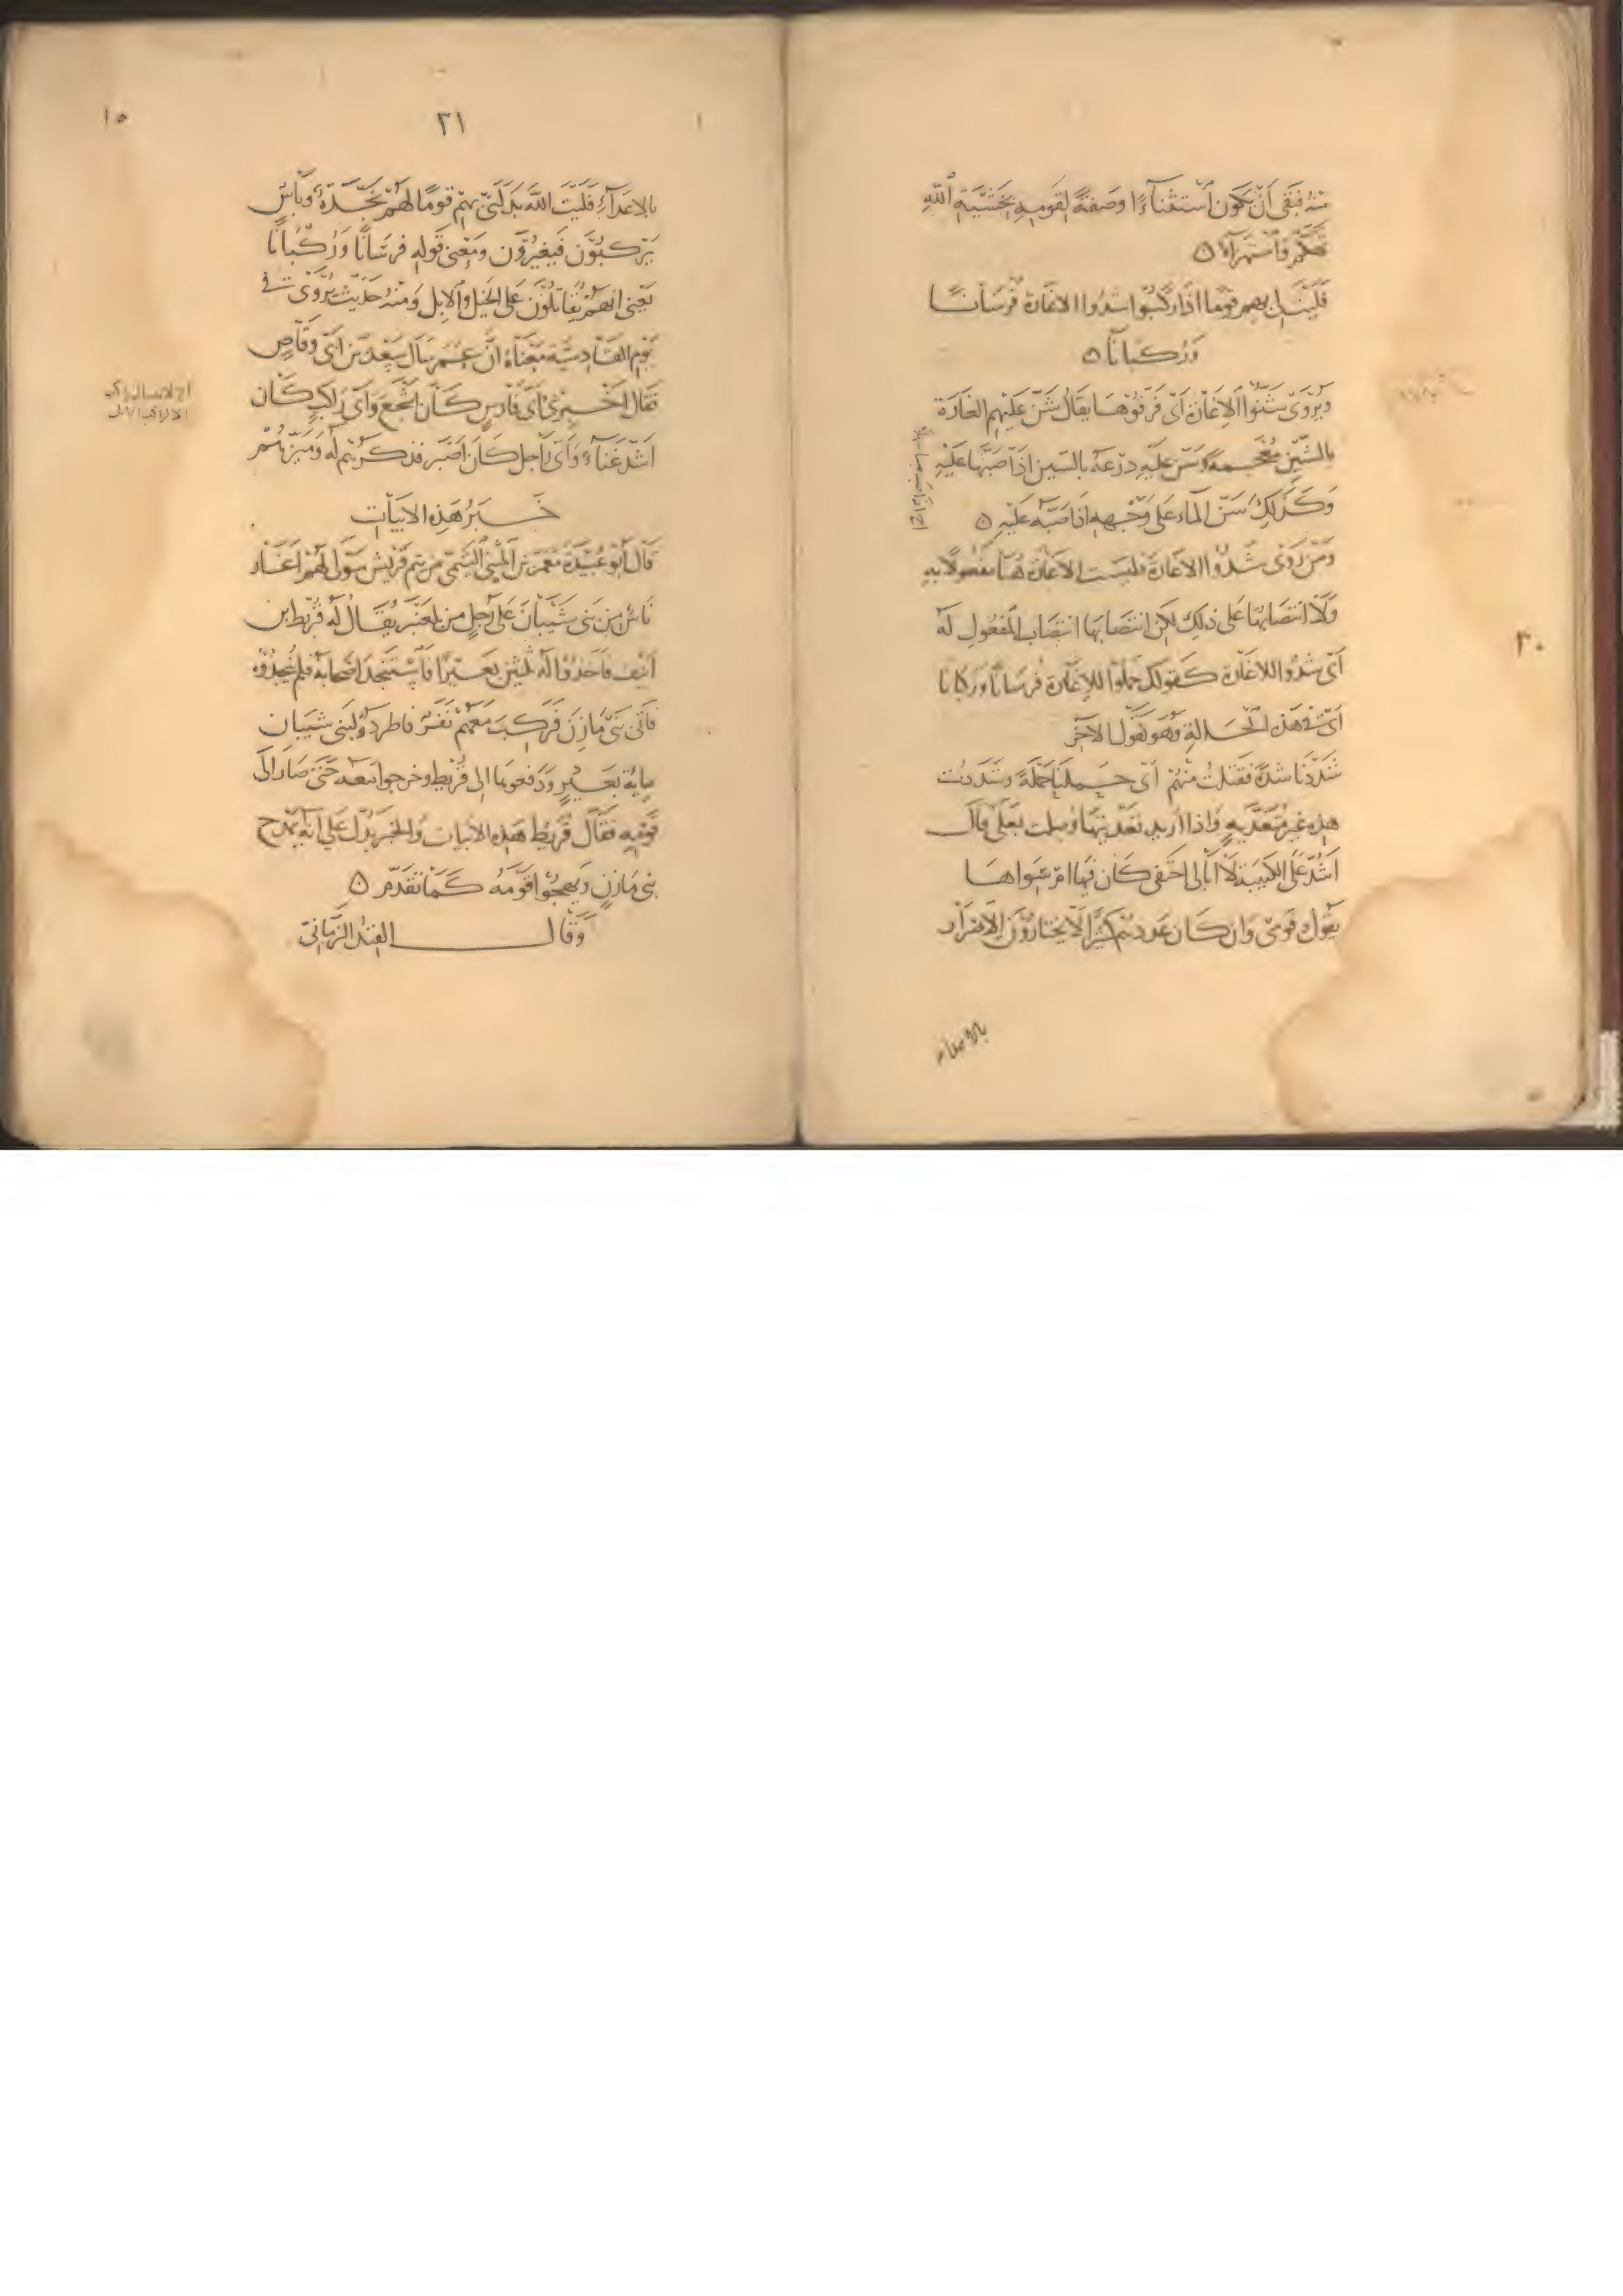 منه فبقى أن يكون استثناءا وصفة لقومه بخشية الله
تهكم واستهزاء ه
فليت لى بهم قوما اذا ركبوا شدوا الاغارة فرسانا
وركبانا ه
ويروى شنوا الاغارة أى فرقوها يقال شن عليهم الغارة
بالشين معجمة وسن عليه درعه بالسين اذا صبها عليه
وكذلك سن الماء على وجهه اذا صبه عليه ه
ومن روى شدوا الاغارة فليست الاغارة هنا مفعولا به
ولا انتصابها على ذلك لكن انتصابها انتصاب المفعول له
أى شدوا للاغارة كقولك حملوا للاغارة فرسانا وركبانا
أى فى هذه الحالة وهو كقول الآخر
شددنا شدة فقتلت منهم أى حملنا حملة وشددت
هذه غير متعدية واذا اريد تعديتها وصلت بعلى قال
أشد على الكتيبة لا أبالى احتفى كان فيها ام سواها
يقول قومى وان كان عددهم كثيرا لا يختارون الاضرار
بالاعداء
٣٠
٣١
١٥
بالاعداء فليت الله بدلنى بهم قوما لهم نجدة وبأس
يركبون فيغيرون ومعنى قوله فرسانا وركبانا
يعنى انهم يقاتلون على الخيل والابل ومنه حديث يروى فى
يوم القادسية معناه ان عمر سأل سعد بن ابى وقاص
فقال أخبرنى أى فارس كان اشجع وأى راكب كان
اشد غناء وأى راجل كان اصبر فذكرهم له وميزهم
خبر هذه الابيات
قال أبو عبيدة معمر بن المثنى التيمى من تيم قريش مولى لهم اغار
ناس من بنى شيبان على رجل من بلعنبر يقال له قريط ابن
انيف فاخذوا له ثلثين بعيرا فاستنجد اصحابه فلم ينجدوه
فأتى بنى مازن فركب معهم نفر فاطردوا لبنى شيبان
ماية بعير ودفعوها الى قريط وخرجوا معه حتى صار الى
قومه فقال قريط هذه الابيات والخبر يدل على انه يمدح
بنى مازن ويهجوا قومه كما تقدم ه
وقال الفند الزمانى